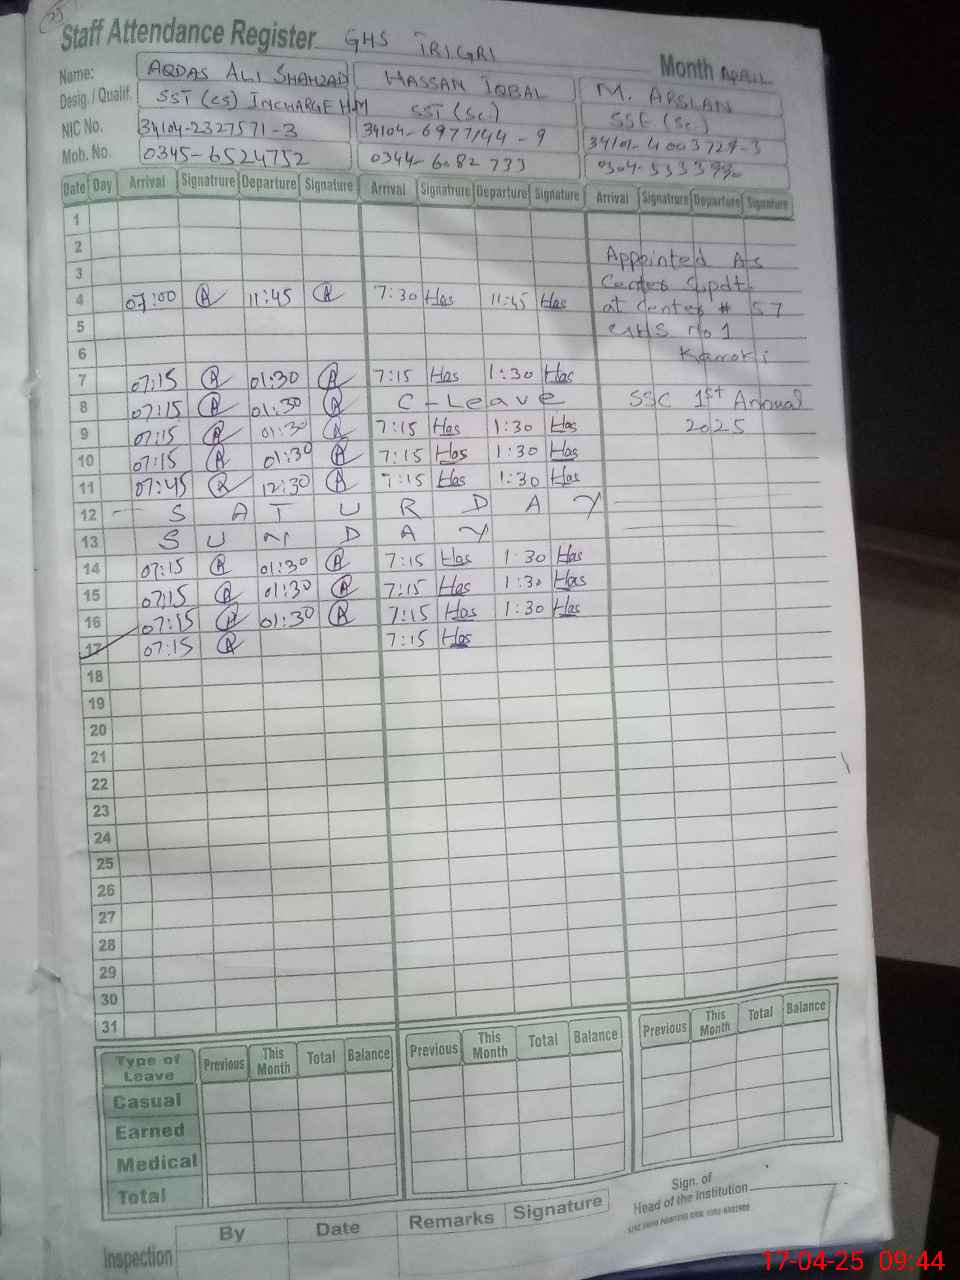 Staff Attendance Register GHS TRIGRI
Month APRIL
Name: AQDAS ALI SHAHZAD HASSAN IQBAL M. ARSLAN
Desig. / Qualif. SST (CS) INCHARGE HM SST (Sc.) SSE (Sc.)
NIC No. 34104-2327571-3 34104-6977144-9 34101-4003729-3
Mob. No. 0345-6524752 0344-6082733
Date Day Arrival Signatrure Departure Signature Arrival Signatrure Departure Signature Arrival Signatrure Departure Signature
1
2 Appointed As
3 Center Supdt
4 07:00 11:45 7:30 Has 11:45 Has at Center # 57
5 GHS no 1
6 Kamoki
7 07:15 01:30 7:15 Has 1:30 Has
8 07:15 01:30 C-Leave SSC 1st Annual
9 07:15 01:30 7:15 Has 1:30 Has 2025
10 07:15 01:30 7:15 Has 1:30 Has
11 07:45 12:30 7:15 Has 1:30 Has
12 S A T U R D A Y
13 S U N D A Y
14 07:15 01:30 7:15 Has 1:30 Has
15 07:15 01:30 7:15 Has 1:30 Has
16 07:15 01:30 7:15 Has 1:30 Has
17 07:15 7:15 Has
18
19
20
21
22
23
24
25
26
27
28
29
30
31
Type of Leave Previous This Month Total Balance Previous This Month Total Balance Previous This Month Total Balance
Casual
Earned
Medical
Total
Sign. of
Head of the Institution
By Date Remarks Signature
Inspection
17-04-25 09:44